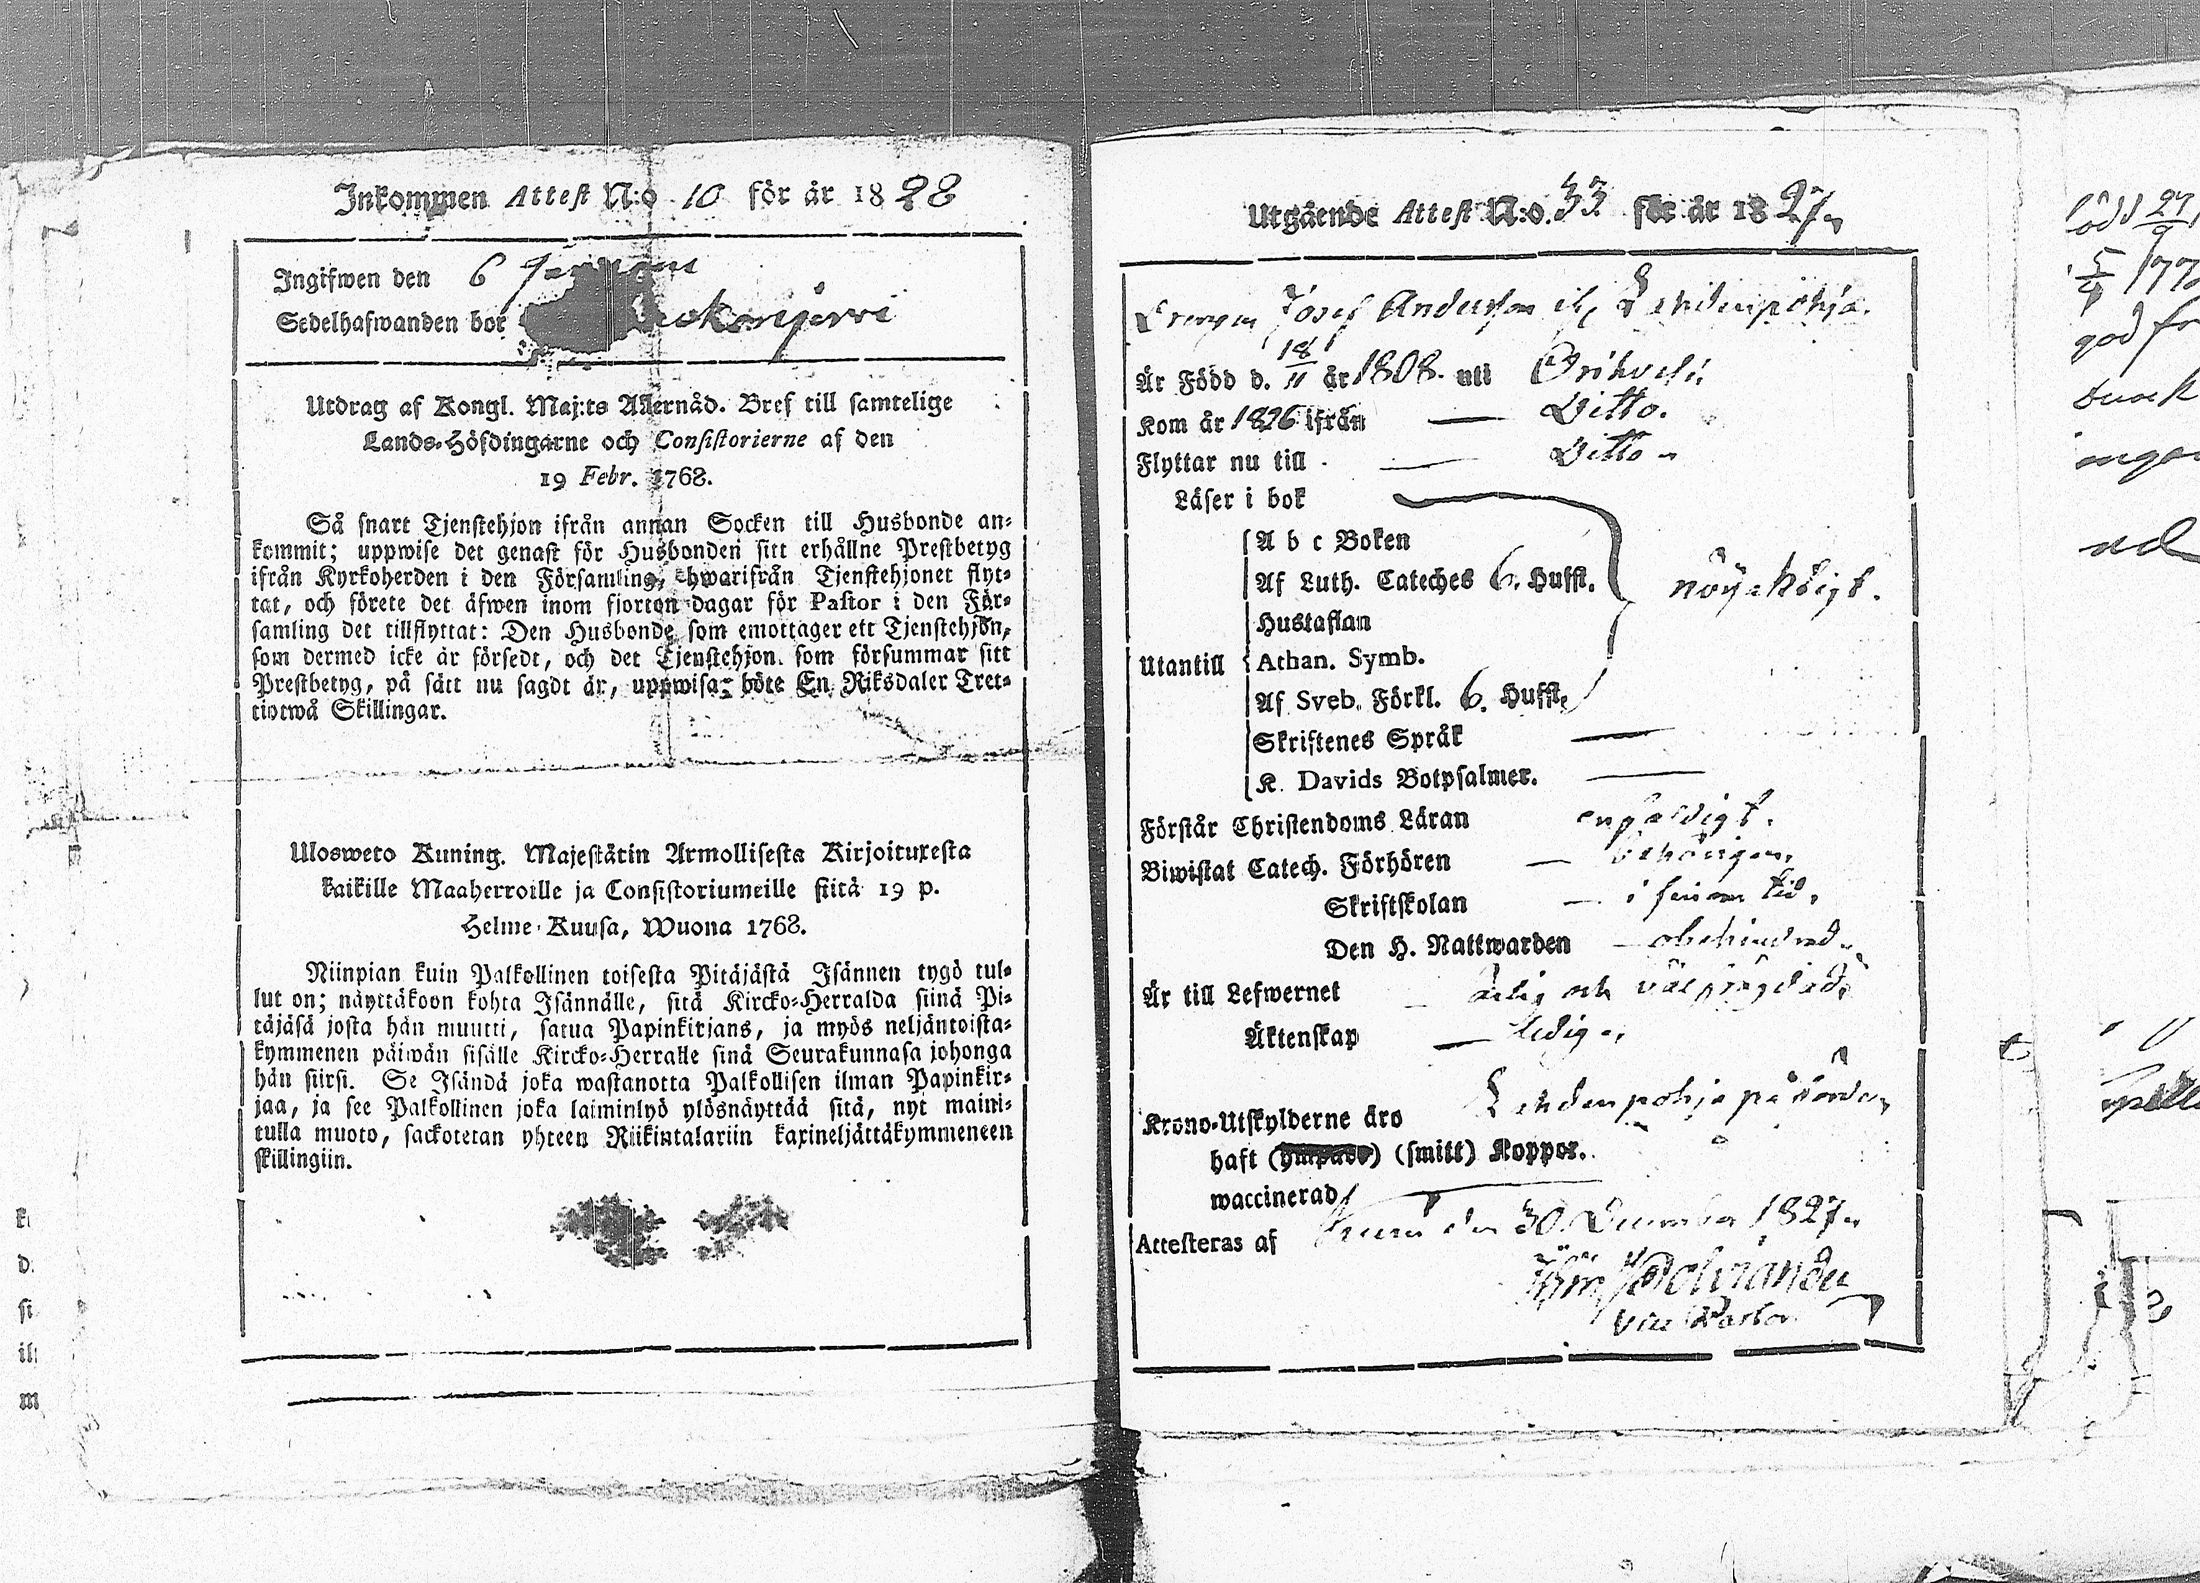 Inkommen Attest N:o 10 för år 1828
Ingifwen den 6
Sedelhafwanden bor
Utdrag af Kongl. Maj:ts Allernåd. Bref till samtelige
Lands-Höfdingarne och Consistorierne af den
19 Febr. 1768.
Så snart Tjenstehjon ifrån annan Socken till Husbonde an-
kommit; uppwise det genast för Husbonden sitt erhållne Prestbetyg
ifrån Kyrkoherden i den Församling, hwarifrån Tjenstehjonet flyt-
tat, och förete det äfwen inom fjorton dagar för Pastor i den För-
samling det tillflyttat: Den Husbonde som emottager ett Tjenstehjon,
som dermed icke är försedt, och det Tjenstehjon som försummar sitt
Prestbetyg, på sätt nu sagdt är, uppwisa; böte En Riksdaler Tret-
tiotwå Skillingar.
Ulosweto Kuning. Majestätin Armollisesta Kirjoituxesta
kaikille Maaherroille ja Consistoriumeille siitä 19 p.
Helme-Kuusa, Wuona 1768.
Niinpian kuin Palkollinen toisesta Pitäjästä Isännen tygö tul-
lut on; näyttäkoon kohta Isännälle, sitä Kircko-Herralda siinä Pi-
täjäsä josta hän muutti, satua Papinkirjans, ja myös neljäntoista-
kymmenen päiwän sisälle Kircko-Herralle sinä Seurakunnasa johonga
hän siirsi. Se Isändä joka wastanotta Palkollisen ilman Papinkir-
jaa, ja see Palkollinen joka laiminlyö ylösnäyttää sitä, nyt maini-
tulla muoto, sackotetan yhteen Riikintalariin kaxineljättäkymmeneen
skillingiin.
Utgående Attest N:o. 33 för år 1827.
Drengen Josef Andersson if. Lehdenpohja.
Är Född d. 18/11 år 1808. uti Orihvesi
Kom år 1826 ifrån — Ditto.
Flyttar nu till — Ditto
Läser i bok
A b c Boken
Af Luth. Cateches 6. Hufst. nöjaktigt.
Hustaflan
Utantill Athan. Symb.
Af Sveb. Förkl. 6. Hufst.
Skriftenes Språk —
K. Davids Botpsalmer. —
Förstår Christendoms Läran enfaldigt.
Biwistat Catech. Förhören —
Skriftskolan — i sinom tid.
Den H. Nattwarden — obehindrad
Är till Lefwernet — ärlig och välfrägdad.
Äktenskap — ledig
Krono-Utskylderne äro Lehdenpohja påförda
haft (smitt) Koppor.
waccinerad —
Attesteras af den 30 December 1827
Vice Pastor